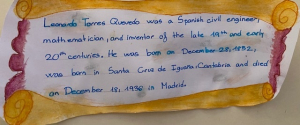 Leonardo Torres Quevedo was a Spanish civil engineer,
mathematician, and inventor of the late 19th and early
20th centuries. He was born on December 28, 1852,
was born in Santa Cruz de Iguña, Cantabria and died
on December 18, 1936 in Madrid.